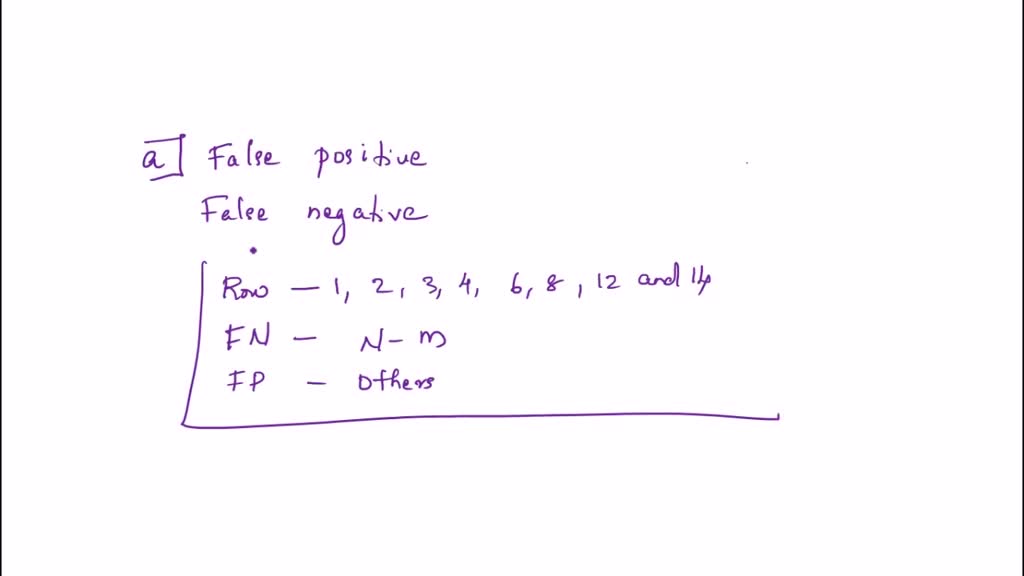 a] False positive
False negative
Row – 1, 2, 3, 4, 6, 8, 12 and 14
FN – N - m
FP – Others